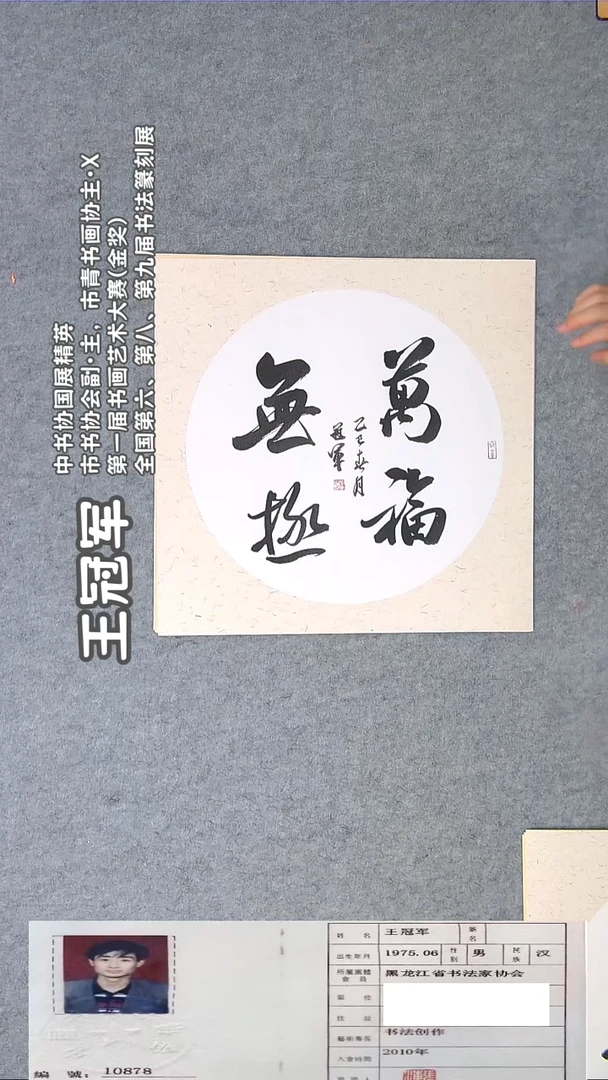 中书协国展精英
市书协会副·主，市青书画协主·X
第一届书画艺术大赛(金奖)
全国第六、第八、第九届书法篆刻展
王冠军
萬福
無極
乙巳春月
冠軍
姓 名 王冠军 筆名
出生年月 1975.06 性别 男 民族 汉
所屬團體會員 黑龙江省书法家协会
單 位
住 址
藝術專長 书法创作
入會時間 2010年
編 號: 10878